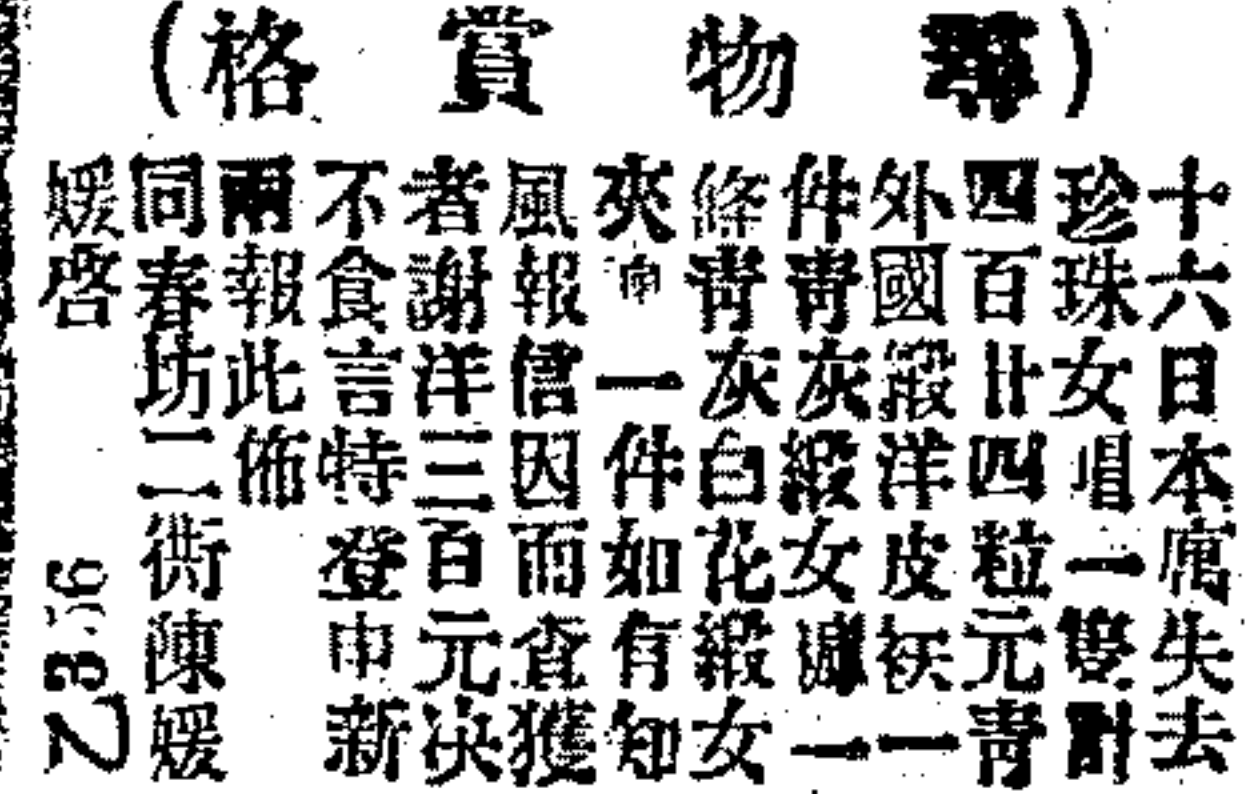 (格賞物尋)
十六日本寓失去
珍珠女唱一雙計
四百廿四粒元青
外國緞洋皮袄一
件青灰緞女一
條青灰白花緞女
夾一件如有知
風報信因而查獲
者謝洋三百元决
不食言特登申新
兩報此佈
同春坊二衖陳媛
媛啓